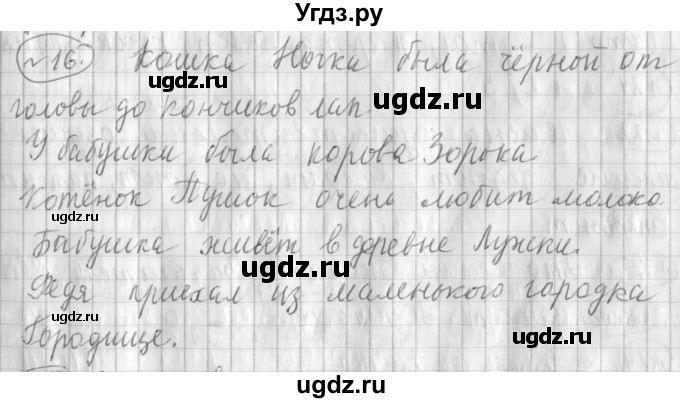 Угдз.ру
№16. Кошка Ночка была чёрной от
головы до кончиков лап
У бабушки была корова Зорька
Котёнок Пушок очень любит молоко.
Бабушка живёт в деревне Лужки.
Федя приехал из маленького городка
Городище.
ugdz.ru
ugdz.ru
ugdz.ru
ugdz.ru
ugdz.ru
ugdz.ru
ugdz.ru
ugdz.ru
ugdz.ru
ugdz.ru